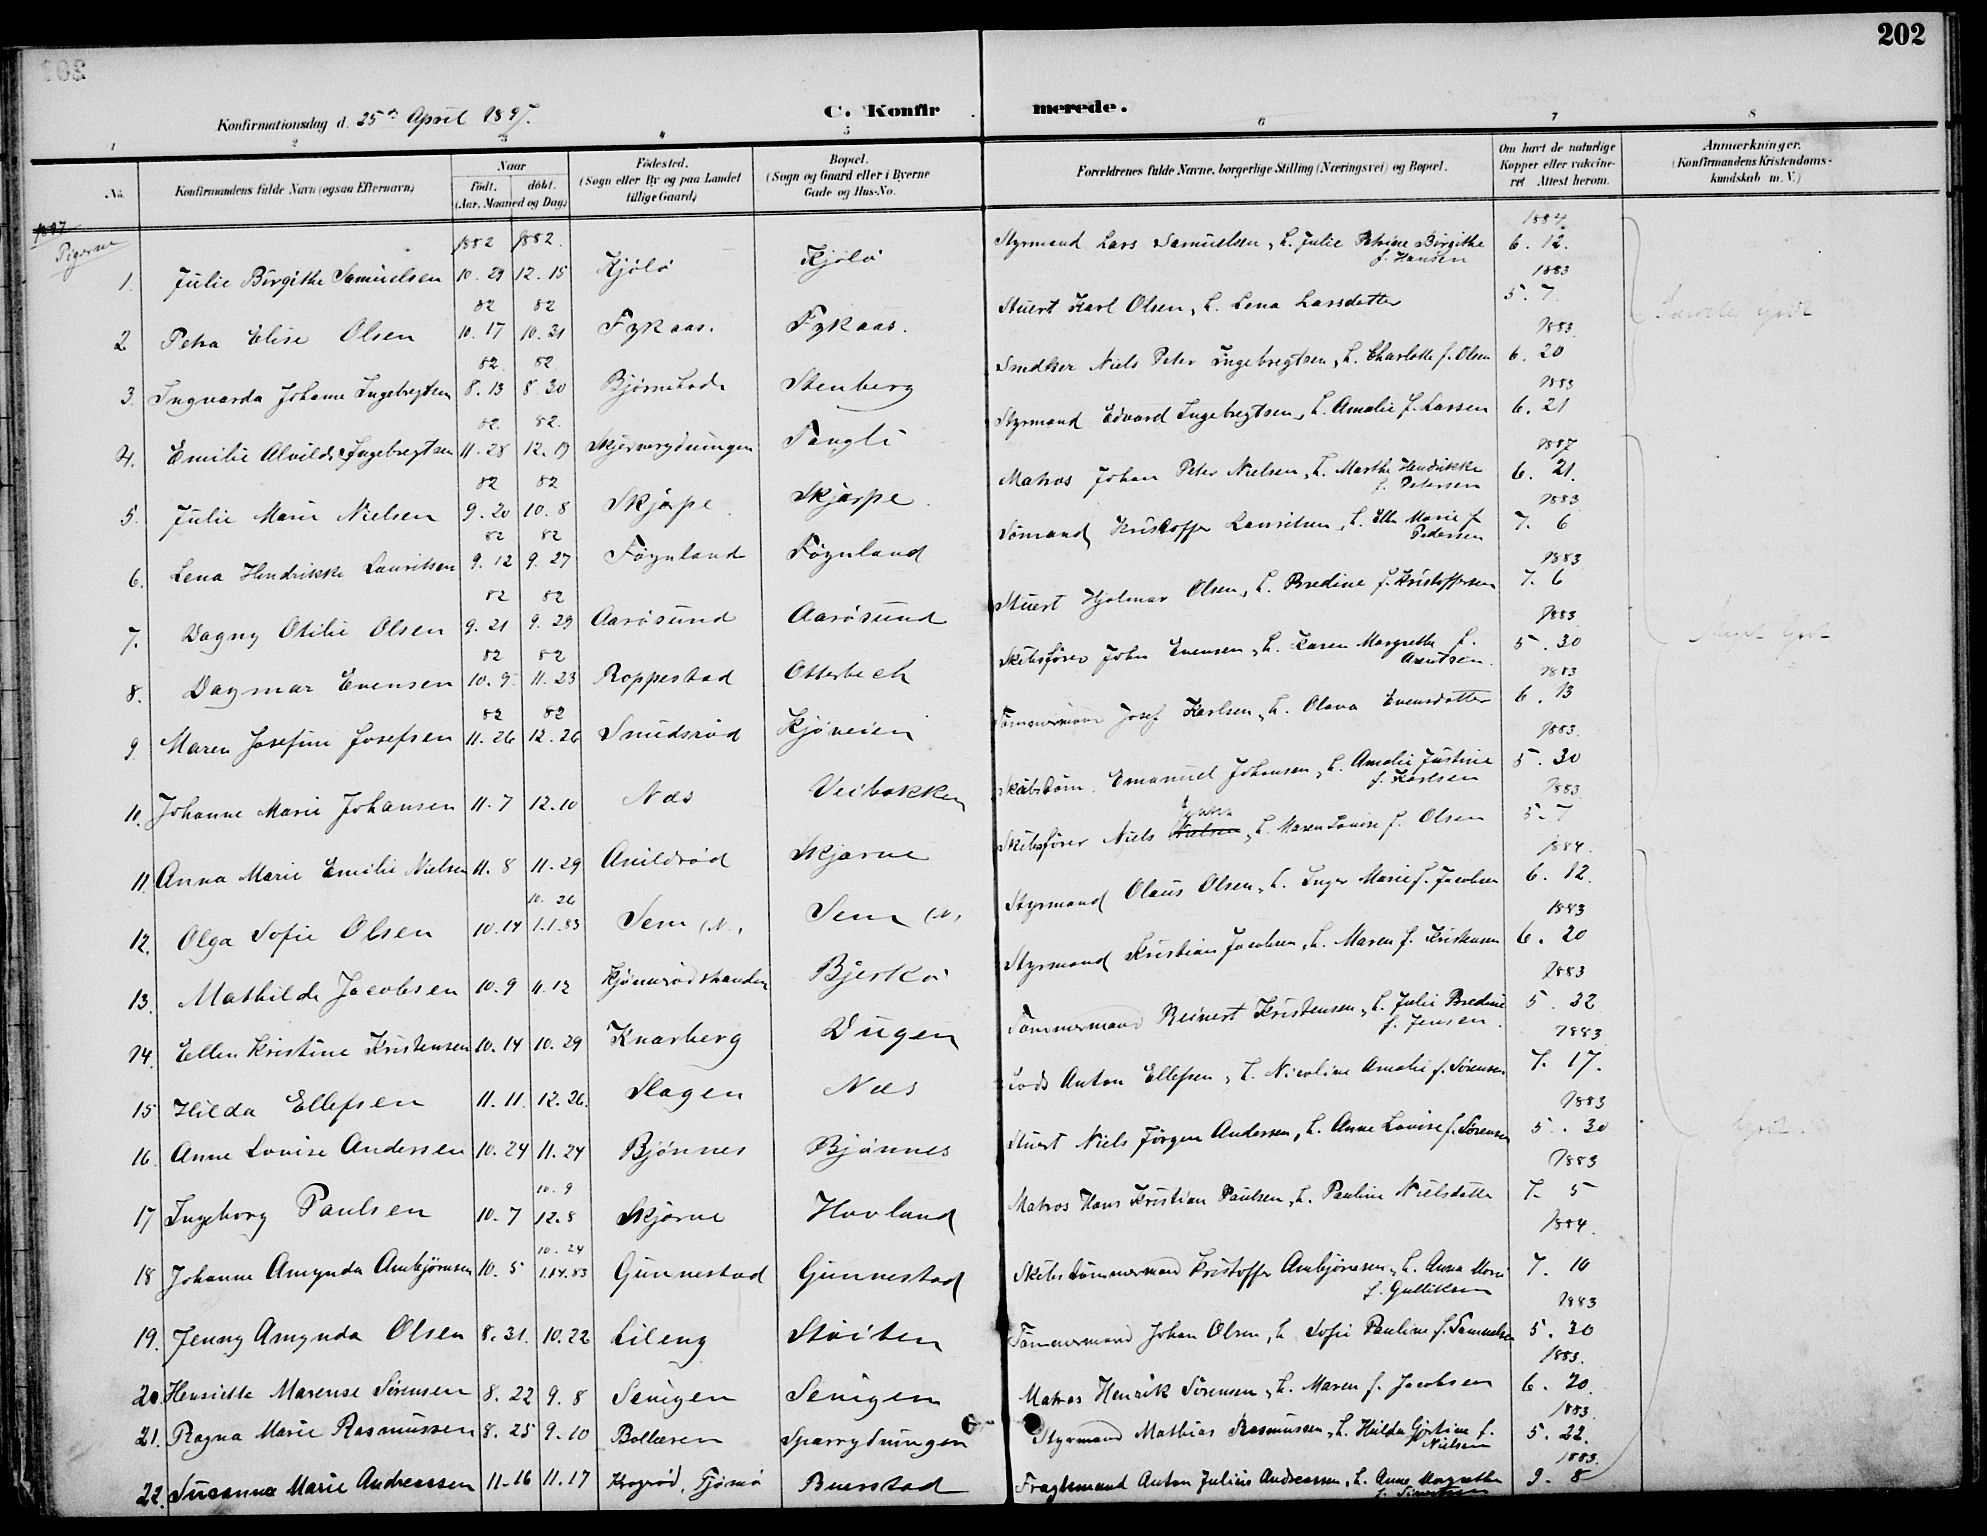 202
C. Konfirmerede.
Konfirmationsdag d. 25de April 1897.
1 2 3 4 5 6 7 8
No.
Konfirmandens fulde Navn (ogsaa Efternavn)
Naar
født. døbt.
(Aar, Maaned og Dag)
Fødested.
(Sogn eller By og paa Landet tillige Gaard)
Bopæl.
(Sogn og Gaard eller i Byerne Gade og Hus-No.
Forældrenes fulde Navne, borgerlige Stilling (Næringsvei) og Bopæl.
Om havt de naturlige Kopper eller vakcineret Attest herom.
Anmærkninger.
(Konfirmandens Kristendomskundskab m. V.)
1897
Pigerne
1. Julie Birgithe Samuelsen 1882 10. 29 1882. 12. 15 Kjølø Kjølø Styrmand Lars Samuelsen, h. Julie Petrine Birgithe f. Hansen 1884. 6. 12.
2 Petra Elise Olsen 82 10. 17 82 10. 31 Fykaas. Fykaas. Stuert Karl Olsen, h. Lena Larsdatter 1883 5. 7.
3. Ingvarda Johanne Ingebregtsen 82. 8. 13 82 8. 30 Stenberg Snedker Niels Peter Ingebregtsen, h. Charlotte f. Olsen 1883. 6. 20
4. Emilie Alvilde Ingebregtsen 82. 11. 28 82. 12. 19 Fangli Styrmand Edvard Ingebregtsen, h. Amalie f. Larsen 1883 6. 21
5. Julie Marie Nielsen 82 9. 20 82 10. 8 Skjærpe Skjærpe Matros Johan Peter Nielsen, h. Marthe Hendrikke f. Petersen 1887 6. 21.
6. Lena Hendrikke Lauritsen 82 9. 12 82 9. 27 Føynland Føynland Sømand Kristoffer Lauritsen, h. Elen Marie f. Pedersen 1883 7. 6
7. Dagny Otilie Olsen 82 9. 21 82 9. 29 Aarøsund Aarøsund Stuert Hjalmar Olsen, h. Bredine f. Kristoffersen 1883 7. 6
8. Dagmar Evensen 82 10. 9 82 11. 23 Roppestad Otterbech Skibsfører John Evensen, h. Karen Margrethe f. 1883 5. 30
9 Maren Josefine Josefsen 82 11. 26 82 12. 26 Smidsrød Kjøveien Tømmermand Josef Karlsen, h. Olava Evensdatter 1883 6. 13
10. Johanne Marie Johansen 11. 7 12. 10 Næs Veibakken Skibstøm. Emanuel Johansen, h. Amalie Justine f. Karlsen 1883. 5. 30
11 Anna Marie Emilie Nielsen 11. 8 11. 29 Arildsrød Skjærve Skibsfører Niels Nielsen, h. Maren Lovise f. Olsen 1883 5. 7
12. Olga Sofie Olsen 10. 14 10. 26 1.1.83 Sem (N. Sem (N. Styrmand Olaus Olsen, h. Inger Marie f. Jacobsen 1884. 6. 12.
13. Mathilde Jacobsen 10. 9 11. 12 Bjerkø Styrmand Kristian Jacobsen, h. Maren f. Kristensen 1883 6. 20
14. Ellen Kristine Kristensen 10. 14 10. 29 Knarberg Vugen Tømmermand Reinert Kristensen, h. Julie Bredine f. Jensen. 1883 5. 32
15 Hilda Ellefsen 11. 11. 12. 26. Slagen Næs Lods Anton Ellefsen, h. Nicoline Amalie f. Sørensen 1883 7. 17.
16. Anne Lovise Andersen 10. 24 11. 24 Bjønnes Bjønnes Stuert Niels Jørgen Andersen, h. Anne Lovise f. Sørensen 1883 5. 30
17 Ingeborg Paulsen 10. 7 10. 9 12. 8 Skjærve Hovland Matros Hans Kristian Paulsen, h. Pauline Nielsdatter 1883 7. 5
18 Johanne Amynda Ambjørnsen 10. 5 10. 24 1.14.83 Gunnestad Gunnestad Skibstømmermand Kristoffer Ambjørnsen, h. Anna Marie f. Gulliksen 1884. 7. 10
19. Jenny Amynda Olsen 8. 31. 10. 22 Lileng Støiten Tømmermand Johan Olsen, h. Sofie Pauline f. Samuelsen 1883 5. 30
20. Henriette Marense Sørensen 8. 22 9. 8 Matros Henrik Sørensen, h. Maren f. Jacobsen 1883. 6. 20.
21. Ragna Marie Rasmussen 8. 25 9. 10 Bollæren Sparrydningen Styrmand Mathias Rasmussen, h. Hilda f. Nielsen 1883 5. 22.
22. Susanna Marie Andreassen 11. 16 11. 17 Krogrød, Tjømø Buerstad Fragtemand Anton Julius Andreassen, h. Anne Margrethe 1883. 9. 8
Særdeles godt
Meget Godt
Godt.